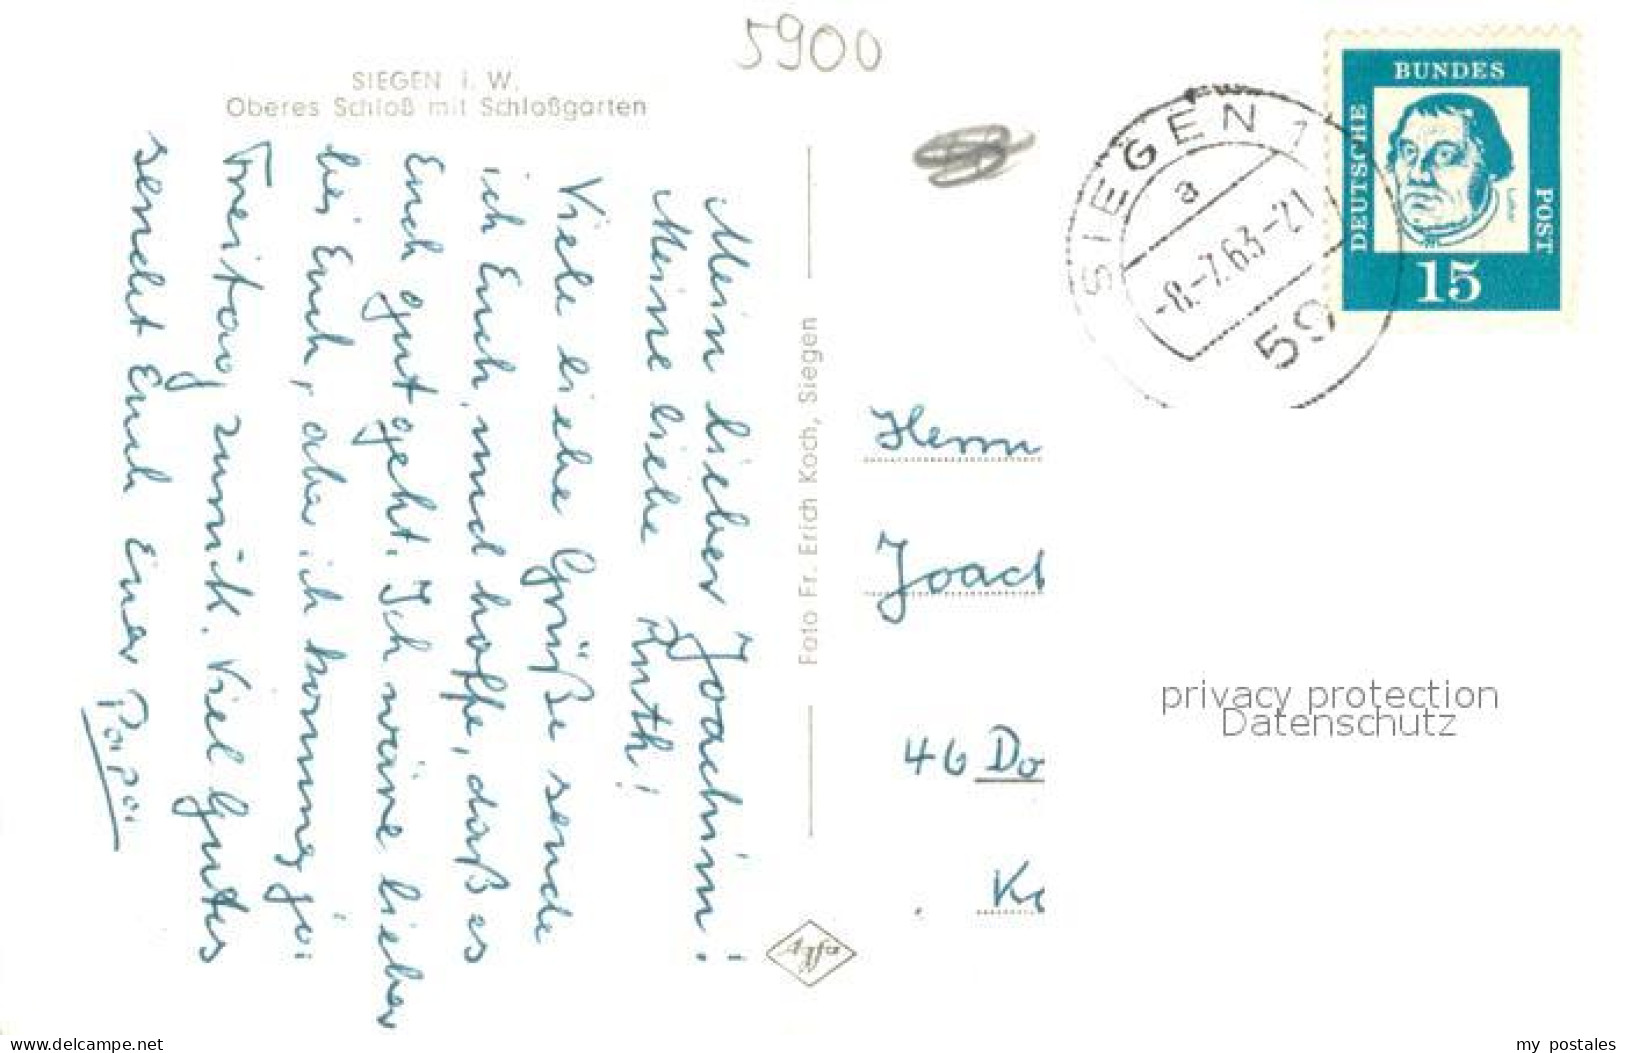 5900
SIEGEN i. W.
Oberes Schloß mit Schloßgarten
Mein lieber Joachim!
Meine liebe Ruth!
Viele liebe Grüße sende
ich Euch, und hoffe, daß es
Euch gut geht. Ich wäre lieber
bei Euch, aber ich komme ja
Freitag zurück. Viel Gutes
sendet Euch Euer Papa
Foto Fr. Erich Koch, Siegen
Agfa
SIEGEN 1
a
-8.-7.63-21
59
DEUTSCHE
BUNDES
POST
Luther
15
Herrn
Joach
46 Do
Ko
privacy protection
Datenschutz
www.delcampe.net
my postales